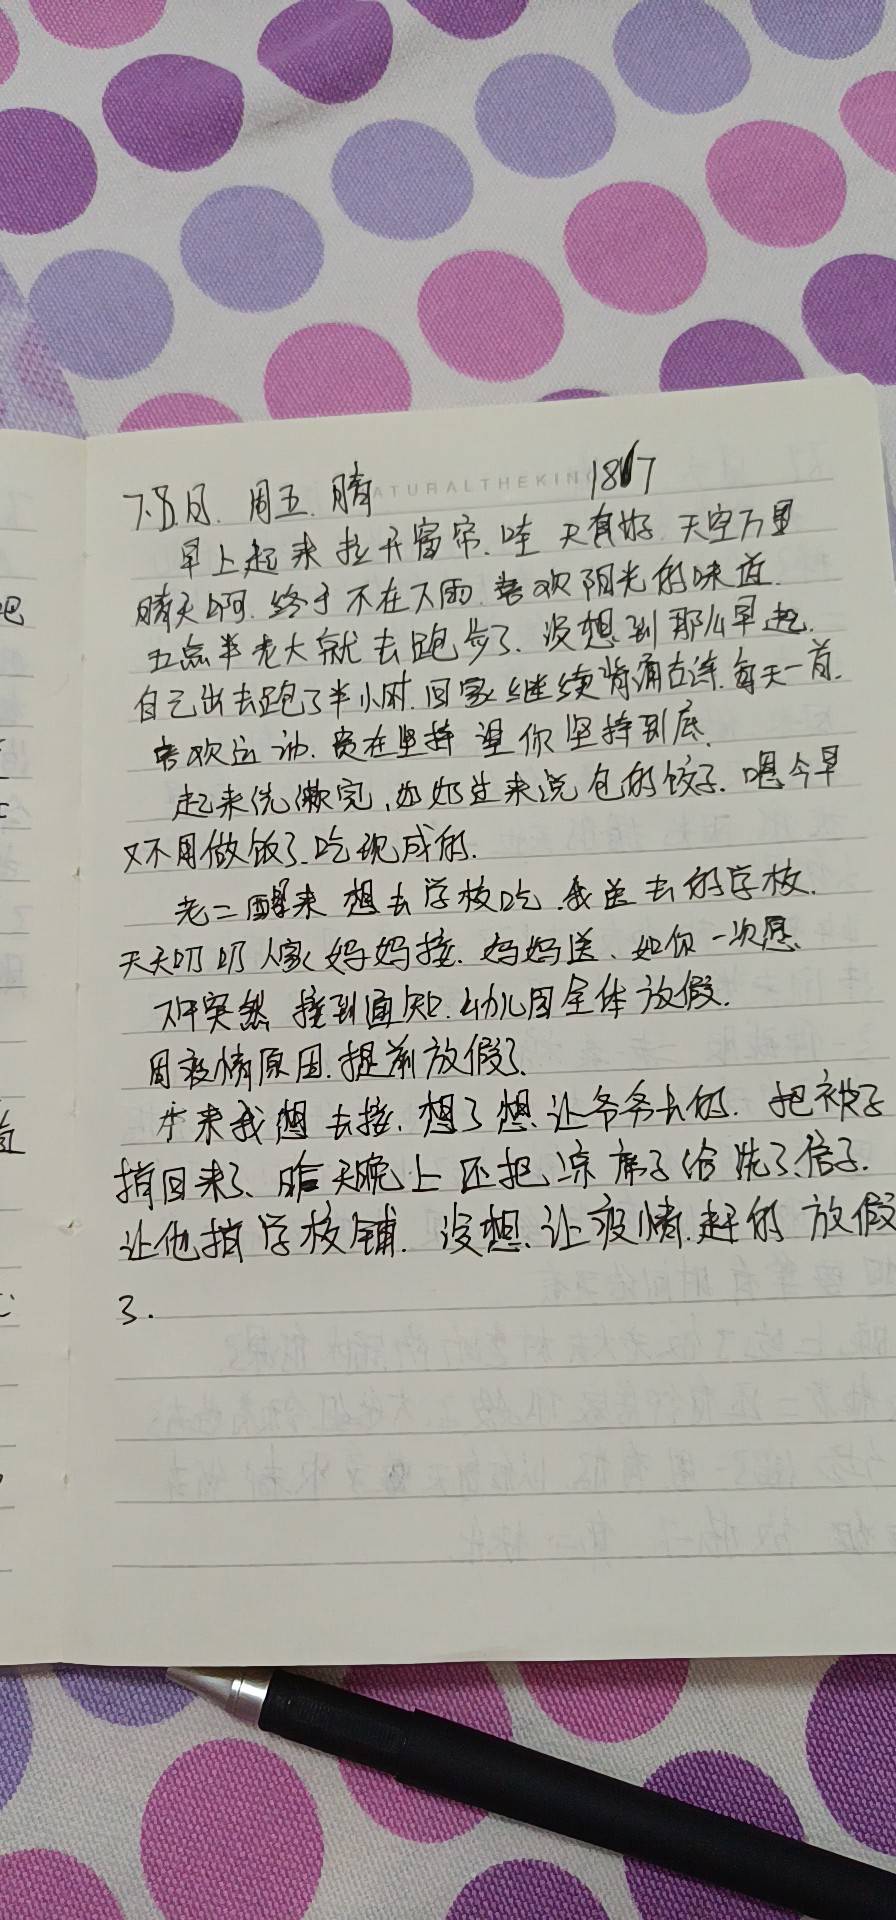 7.8.日. 周五. 晴 NATURALTHEKING 1817
早上起来拉开窗帘. 哇 天真好. 天空万里
晴天啊. 终于不在下雨. 喜欢阳光的味道.
五点半老大就去跑步了. 没想到那么早起.
自己出去跑了半小时. 回家继续背诵古诗. 每天一首.
喜欢运动. 贵在坚持 望你坚持到底.
起来洗漱完, 奶奶送来说包的饺子. 嗯今早
又不用做饭了. 吃现成的.
老二醒来 想去学校吃. 我送去的学校.
天天叨叨人家妈妈接. 妈妈送、如你一次愿.
下午突然 接到通知. 幼儿园全体放假.
因疫情原因. 提前放假了.
本来我想去接. 想了想. 让爷爷去的. 把被子
捎回来了、昨天晚上还把凉席子给洗了.
让他捎学校铺. 没想. 让疫情. 赶的 放假
了.